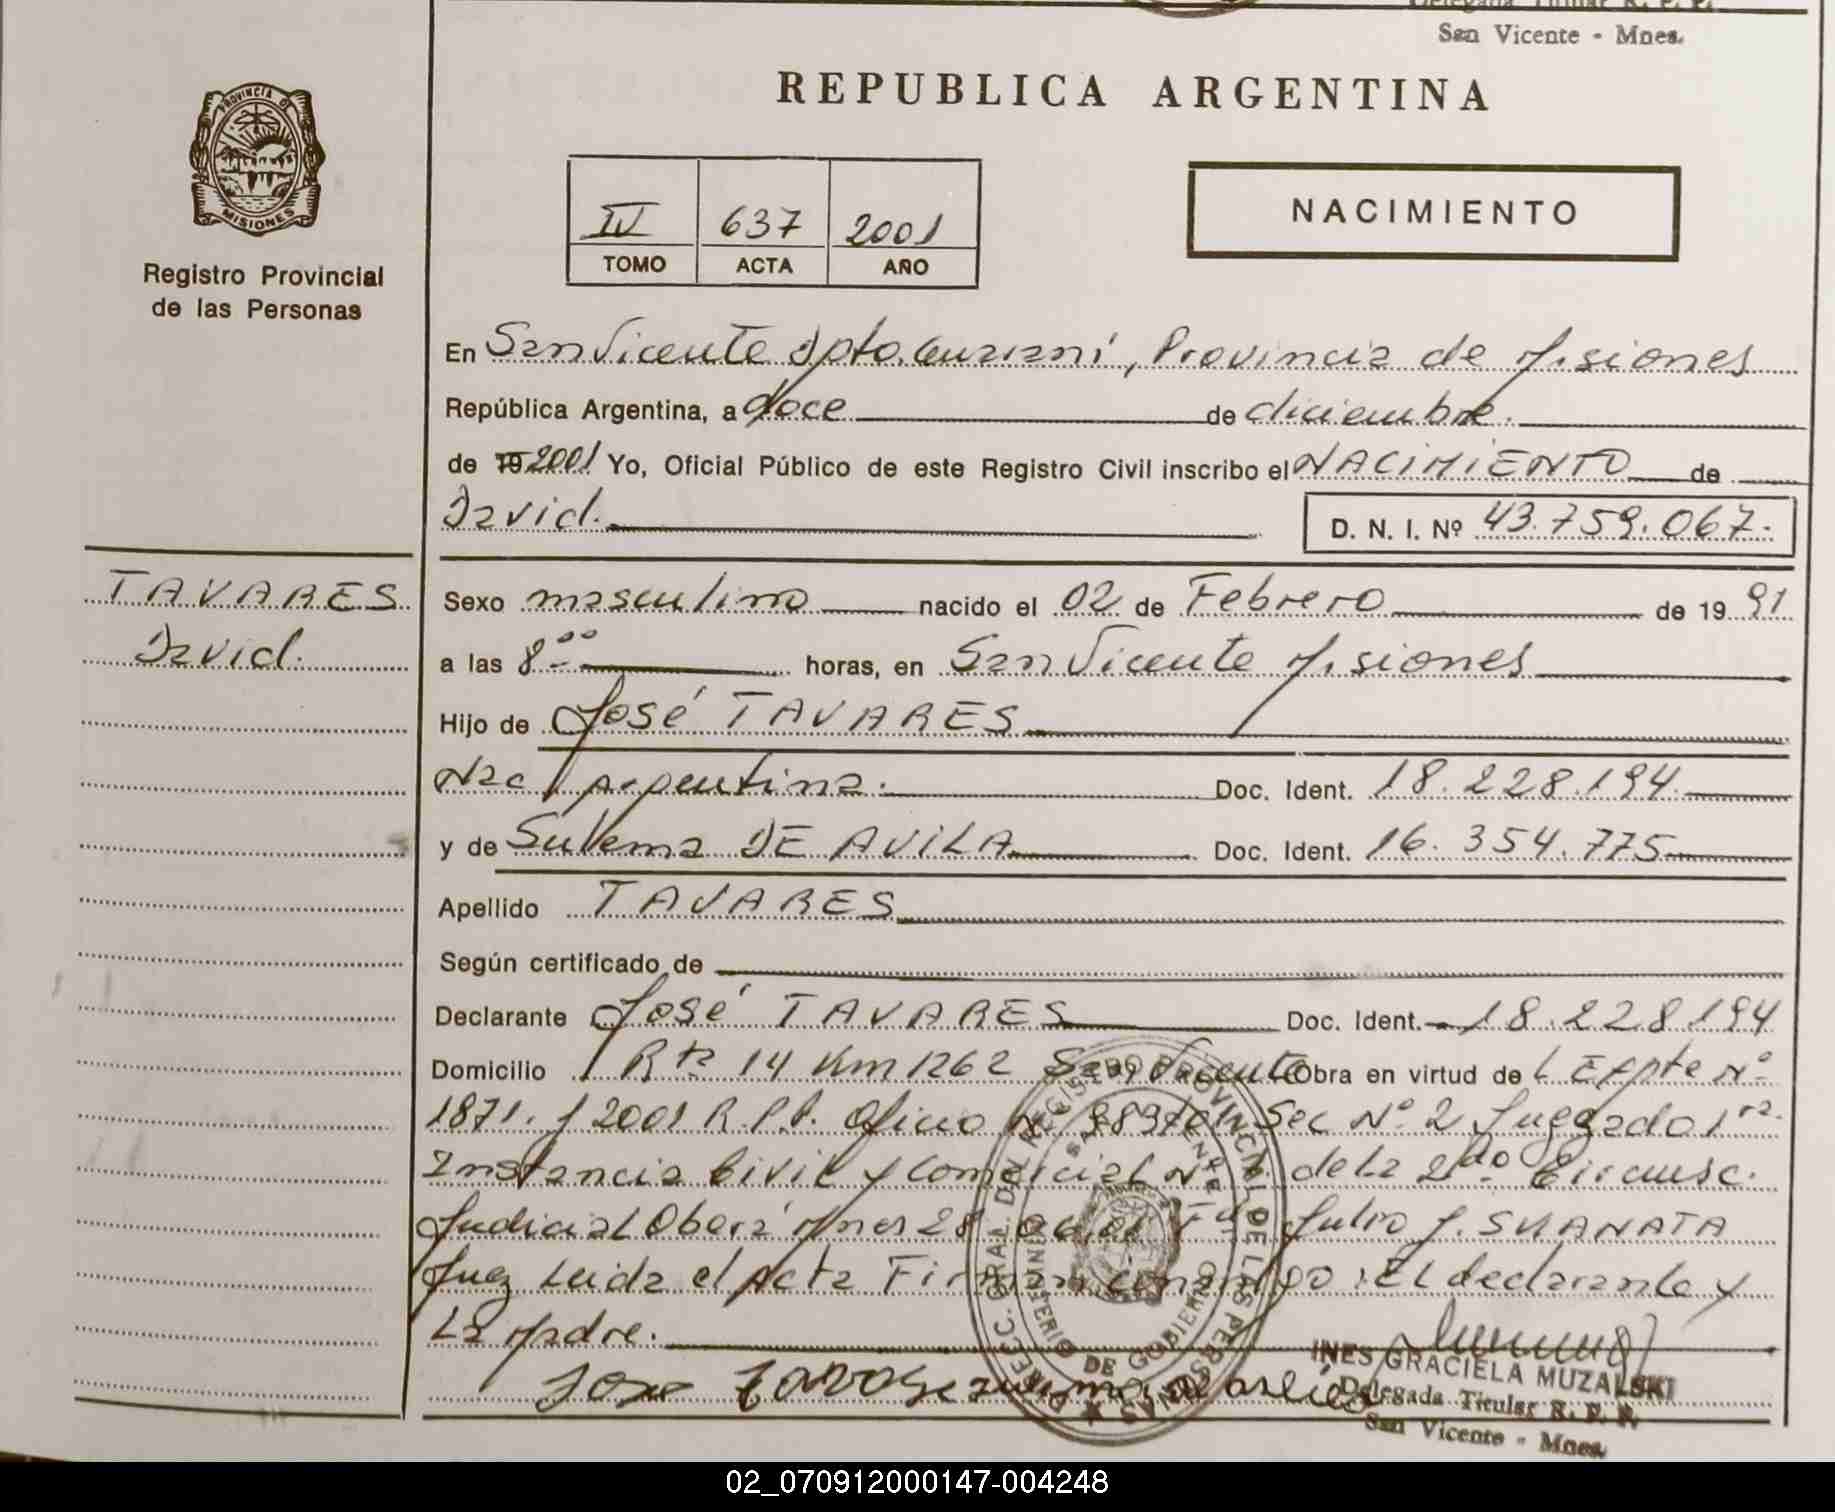 Delegada Titular R. P. P.
San Vicente - Mnes.
REPUBLICA ARGENTINA
PROVINCIA D
MISIONES
Registro Provincial
de las Personas
IV 637 2001
TOMO ACTA AÑO
NACIMIENTO
En San Vicente Dpto. Guaraní, Provincia de Misiones
República Argentina, a doce de diciembre.
de 19 2001 Yo, Oficial Público de este Registro Civil inscribo el NACIMIENTO de
David. D. N. I. Nº 43.759.067.
TAVARES
David.
Sexo masculino nacido el 02 de Febrero de 19 91
a las 8 00 horas, en San Vicente Misiones
Hijo de José TAVARES
Nac/ Argentina. Doc. Ident. 18.228.194.
y de Sulema DE AVILA Doc. Ident. 16.354.775
Apellido TAVARES
Según certificado de
Declarante José TAVARES Doc. Ident. 18.228194
Domicilio Rta 14 Km 1262 San Vicente Obra en virtud del Expte Nº
1871/2001 R.P.P. Oficio Sec Nº 2 Juzgado 1ra.
Instancia Civil y Comercial Nº de la 2do Circunsc.
Judicial Oberá Mnes 28 Julio J. SKANATA
Juez Leida el Acta Firman El declarante y
La Madre.
REGISTRO PROVINCIAL DE LAS PERSONAS
DE GOBIERNO
INES GRACIELA MUZALSKI
Delegada Titular R. P. P.
San Vicente - Mnes.
02_070912000147-004248